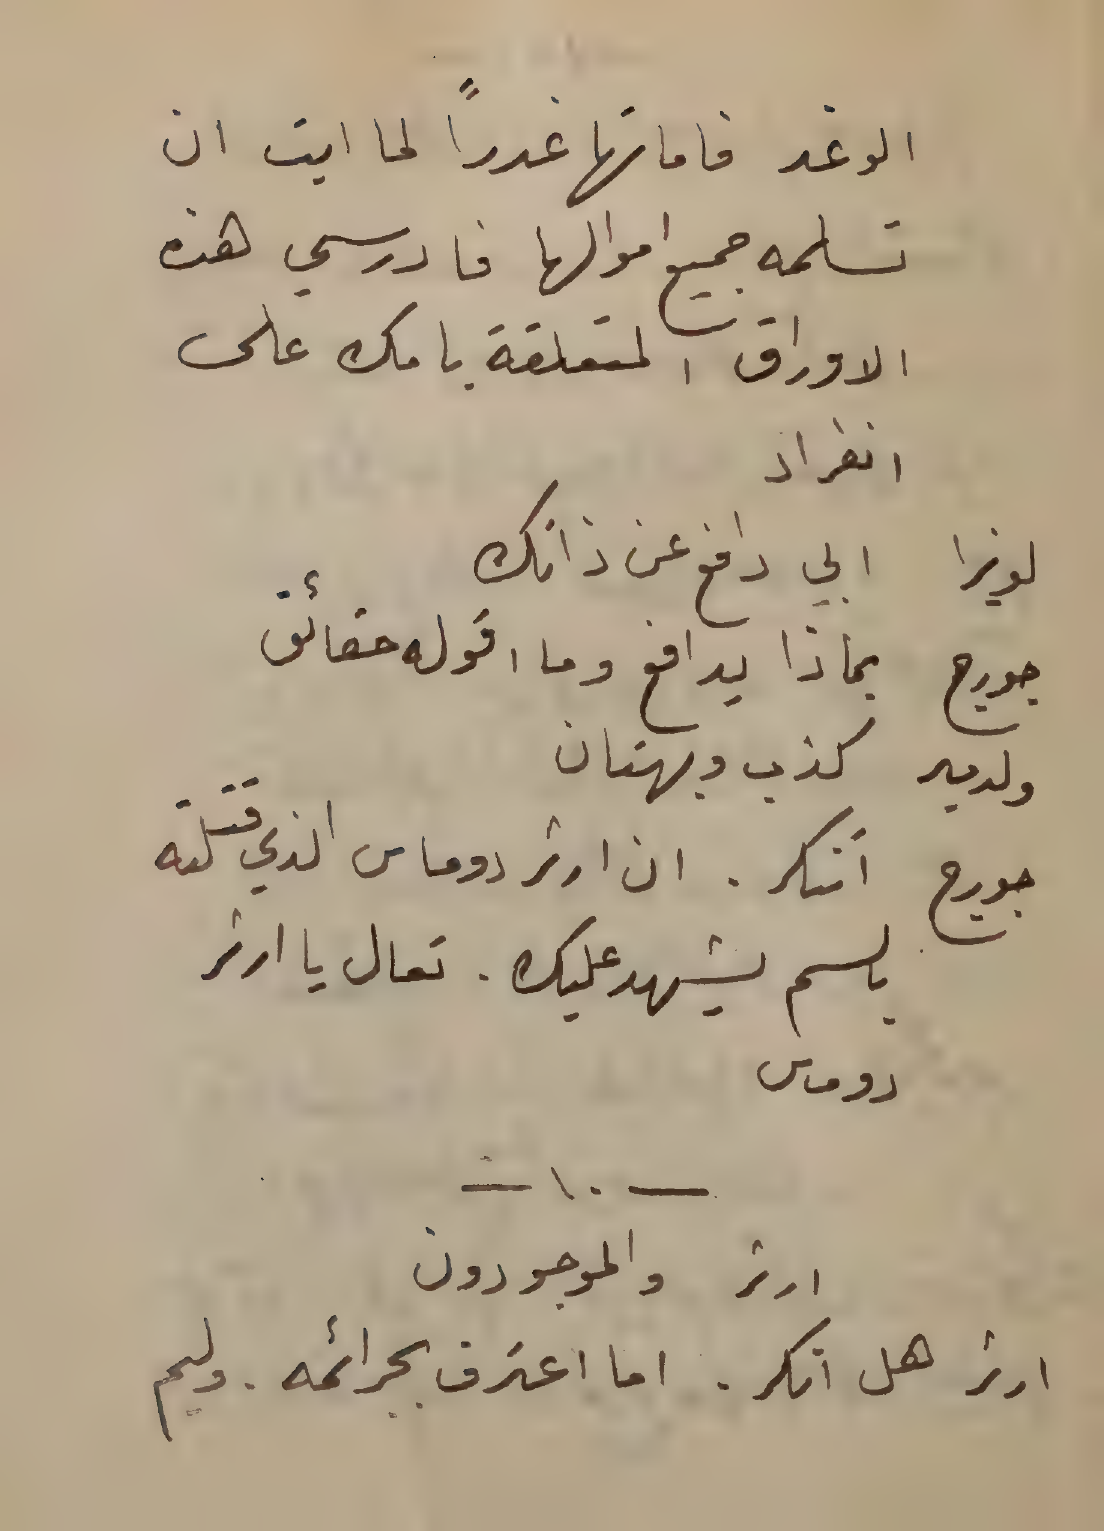 الوغد فاماتها غدراً لما ابت ان
تسلمه جميع اموالها فادرسي هذه
الاوراق المتعلقة بامك على
انفراد
لويزا ابي دافع عن ذاتك
جورج بماذا يدافع وما اقوله حقائق
ولدمير كذب وبهتان
جورج أتنكر . ان ارثر دوماس الذي قتلته
بالسم يشهد عليك . تعال يا ارثر
دوماس
— ١٠ —
ارثر والموجودون
ارثر هل انكر . اما اعترف بجرائمه . وليم